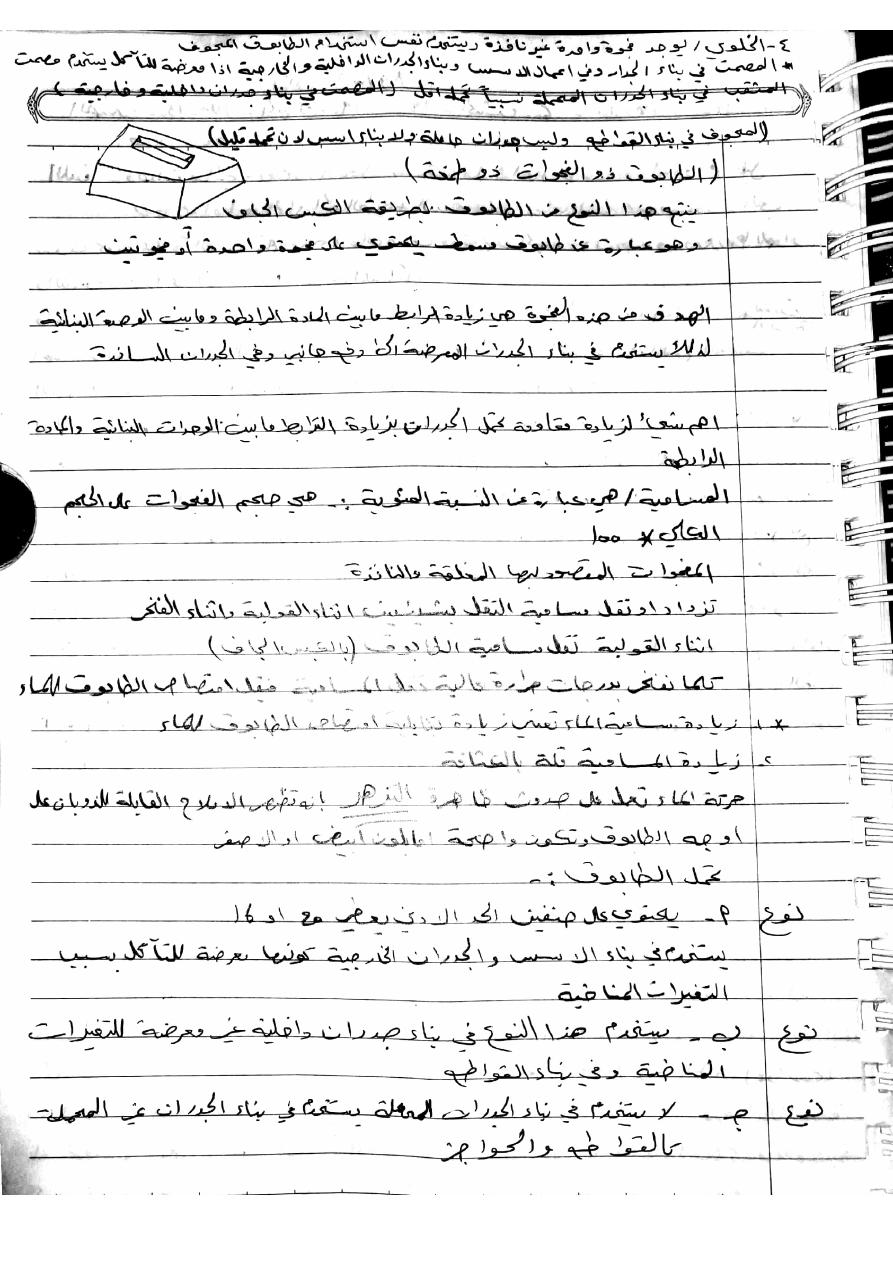 ٤- الخلوي / يوجد فجوة واحدة غير نافذة ويستخدم نفس استخدام الطابوق المجوف
* المصمت في بناء الجدار وفي اعمال الاسس وبناء الجدران الداخلية والخارجية اذا معرضة للتآكل يستخدم مصمت
المثقب في بناء الجدران المحملة نسبياً تحمله اقل (المصمت في بناء جدران داخلية وخارجية)
(المجوف في بناء القواطع وليس جدران حاملة ولا بناء اسس لان تحمله قليل)
(الطابوق ذو الفجوات ذو طمغة)
ينتج هذا النوع من الطابوق بطريقة الكبس الجاف
وهو عبارة عن طابوق مصمط يحتوي على فجوة واحدة أو فجوتين
الهدف من هذه الفجوة هي زيادة الرابط ما بين المادة الرابطة وما بين الوحدة البنائية
لذلك يستخدم في بناء الجدران المعرضة الى دفع جانبي وفي الجدران الساندة
اهم شيء لزيادة مقاومة تحمل الجدران بزيادة الترابط ما بين الوحدات البنائية والمادة
الرابطة
المسامية / هي عبارة عن النسبة المئوية :- هي حجم الفجوات على الحجم
الكلي * 100
الفجوات المقصود بها المغلقة والنافذة
تزداد او تقل مسامية الثقل بشيئين اثناء القولبة واثناء الفخر
اثناء القولبة تقل مسامية الطابوق (بالكبس الجاف)
كلما نفخر بدرجات حرارة عالية تقل المسامية فيقل امتصاص الطابوق للماء
* ١. زيادة مسامية الماء تعني زيادة قابلية امتصاص الطابوق للماء
٢. زيادة المسامية قلة بالكثافة
حركة الماء تعمل على حدوث ظاهرة التزهر انه تظهر الاملاح القابلة للذوبان على
اوجه الطابوق وتكون واضحة باللون أبيض او الاصفر
تحمل الطابوق :-
نوع أ- يحتوي على صنفين الحد الادنى
يستخدم في بناء الاسس والجدران الخارجية كونها معرضة للتآكل بسبب
التغيرات المناخية
نوع ب- يستخدم هذا النوع في بناء جدران داخلية غير معرضة للتغيرات
المناخية وفي بناء القواطع
نوع ج- لا يستخدم في بناء الجدران المحملة يستخدم في بناء الجدران غير المحملة
كالقواطع والحواجز